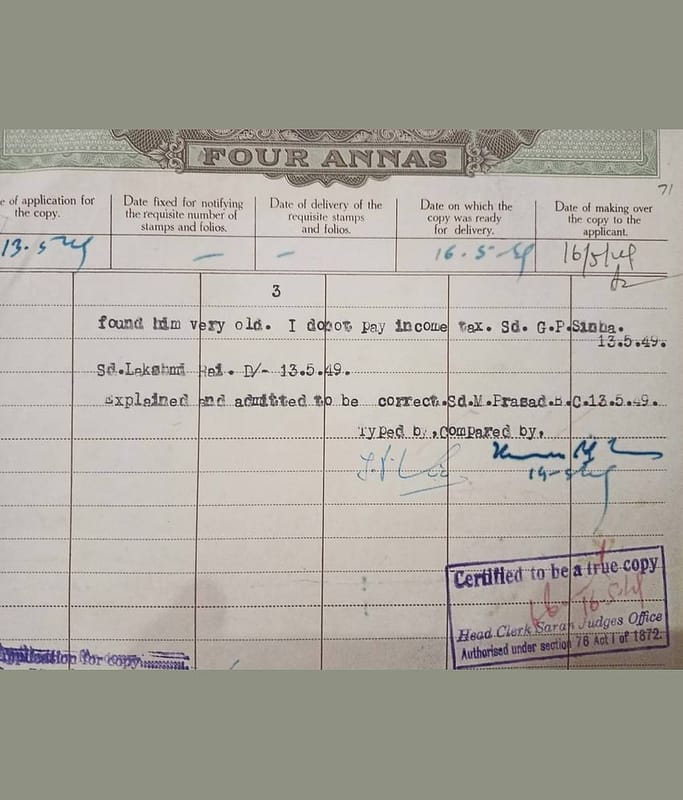 FOUR ANNAS
71
e of application for the copy.
Date fixed for notifying the requisite number of stamps and folios.
Date of delivery of the requisite stamps and folios.
Date on which the copy was ready for delivery.
Date of making over the copy to the applicant.
13.5.49
16.5.49
16/5/49
3
found him very old. I donot pay income tax. Sd. G.P.Sinha.
13.5.49.
Sd.Lakshmi Rai. D/- 13.5.49.
Explained and admitted to be correct.Sd.M.Prasad.B.C.13.5.49.
Typed by, Compared by,
Certified to be a true copy
16.5.49
Head Clerk Saran Judges Office
Authorised under section 76 Act I of 1872.
Application for copy